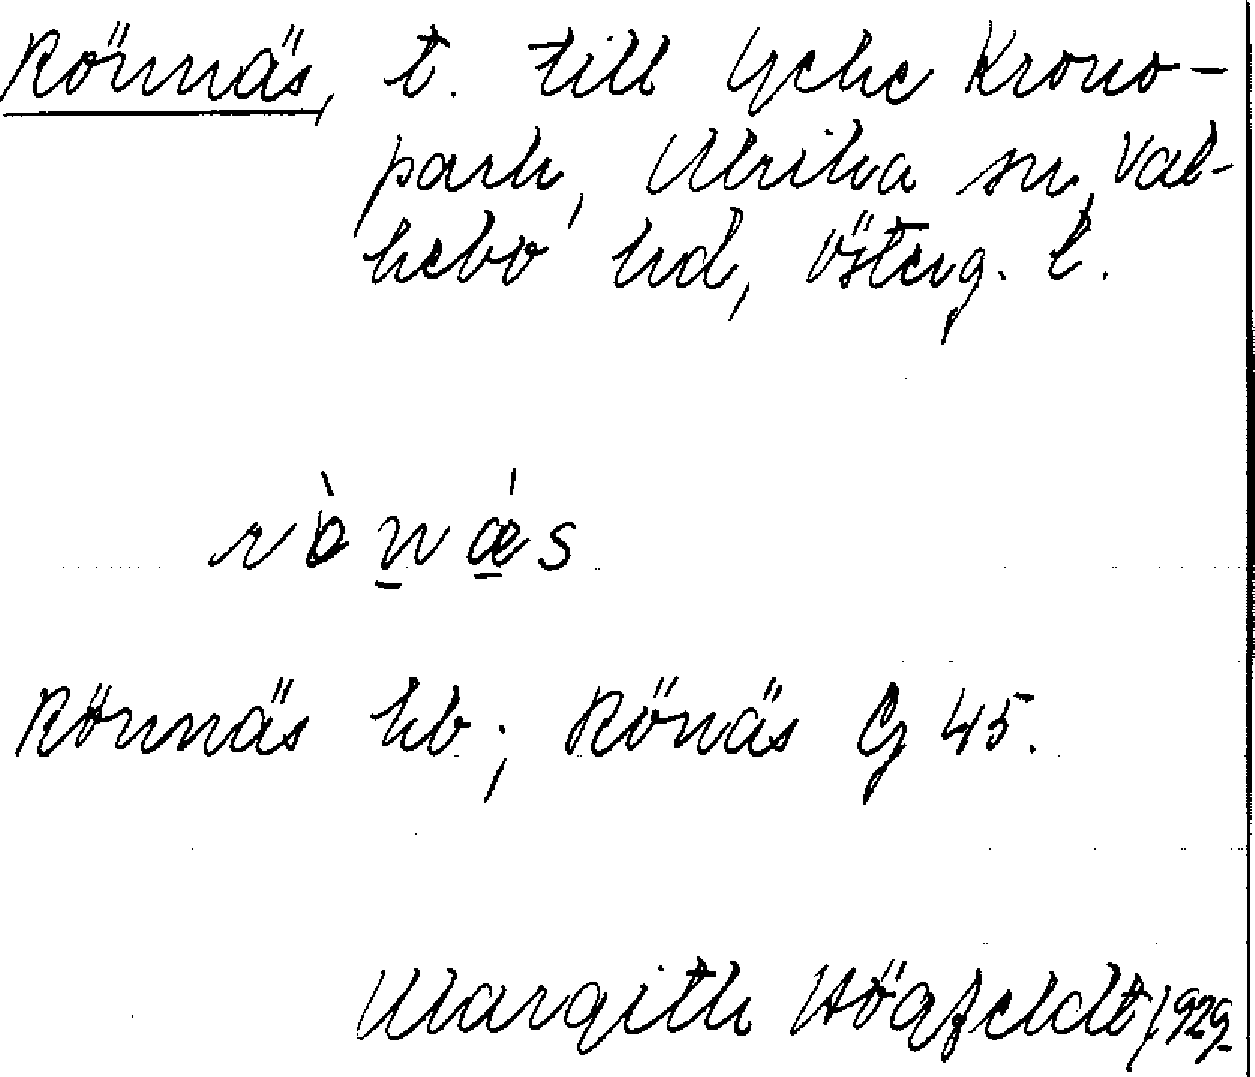 Rönnäs, t. till Yche Krono-
park, Ulrika sn, Val-
kebo hd, Österg. l.
rònǽs
Rönnäs hb; Rönäs G 45.
Margith Högfeldt 1929